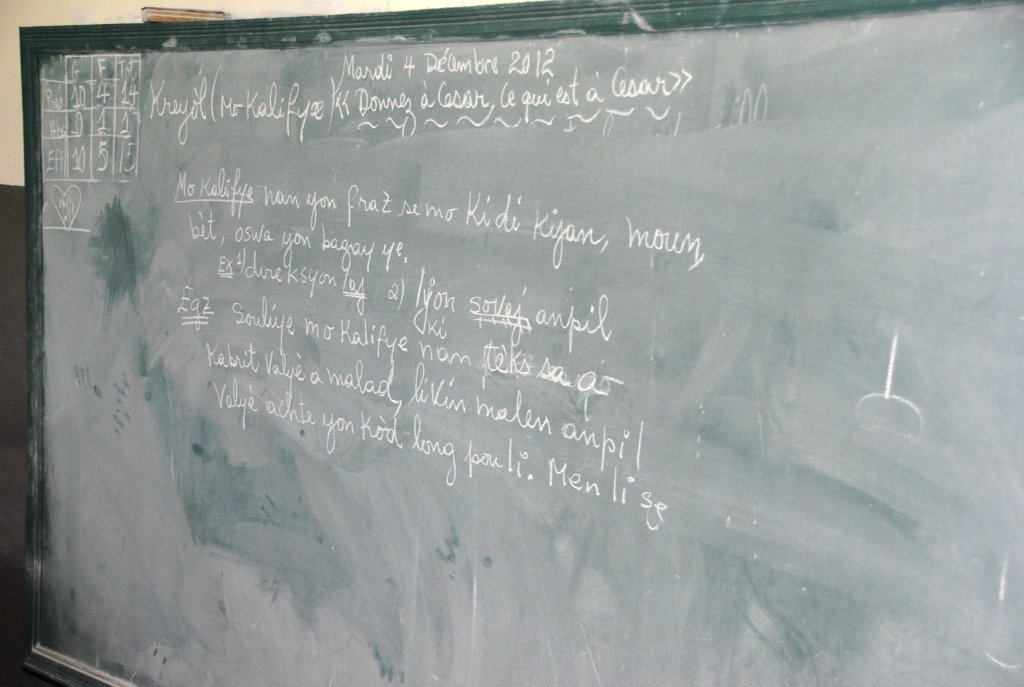 Mardi 4 Décembre 2012
G F Tot
Pres 10 4 14
Abs 0 1 1
Eff 10 5 15
Kreyòl (Mo Kalifye) << Donnez à Cesar, Ce qui est à Cesar>>
Mo Kalifye nan yon fraz se mo Ki di Kijan, moun,
bèt, oswa yon bagay ye.
Ex 1) direksyon laj 2) lyon sovaj anpil
Egz Souliye mo Kalifye ki nan tèks sa a
Kabrit Valyè a malad, li vin malen anpil
Valyè achte yon Kòd long pou li. Men li se